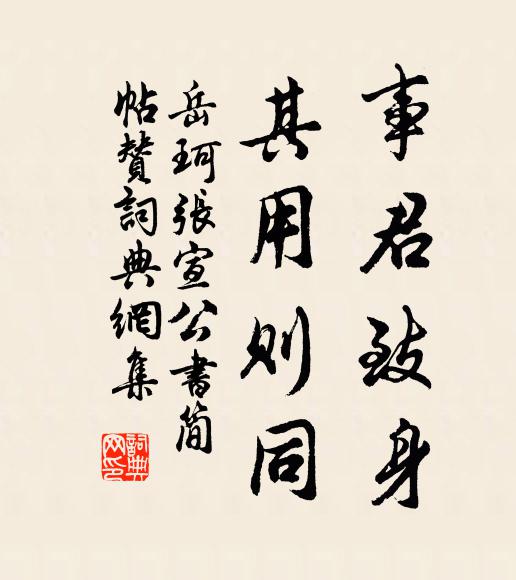 事君致身
其用則同
岳珂張宣公書簡
帖贊詞典網集
詞典網印